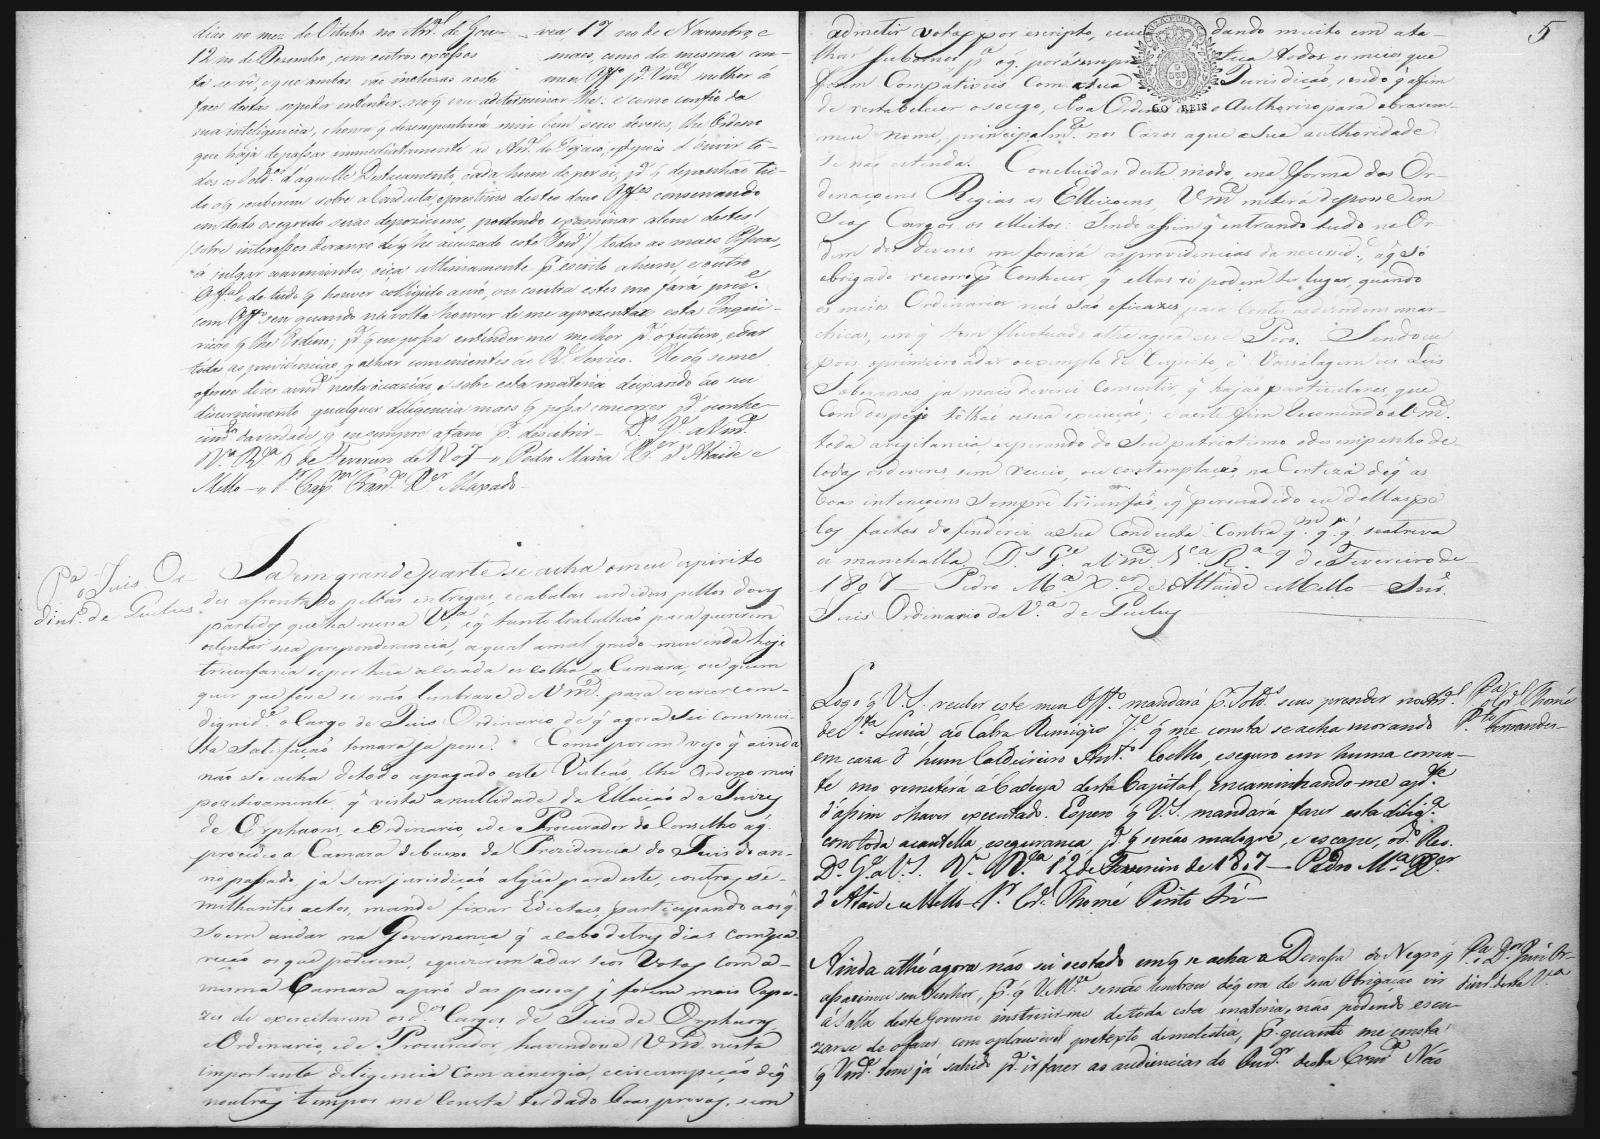 dias no mez de Oitubro no Arl. de Gou- vea 17 no de Novembro, e
12 no de Dezembro, com outros expassos maes, como da mesma con-
ta se vê, e que ambas vão inclusas neste meu Offo. pa. Vmce. melhor á
face destas se poder entender no q eu a determinar lhe: e como confio da
sua inteligencia, e honra q desempenhará mui bem seus deveres, lhe Ordeno
que haja de passar immediatamente ao Arl. de e depois d'ouvir to-
dos os Soldos. d'aquelle Destacamento, cada hum de per si, pa. q deponhão tu-
do o q souberem sobre a Conducta, e prestimo destes dous Offes. conservando
em todo o segredo suas depoziçoens, podendo examinar alem destes
sobre interesses de q he acuzado este Ford. todas as maes Pessoas,
q julgar convenientes, oiça ultimamente pr. escrito a hum, e outro
Offal. e de tudo q houver colligido a favor, ou contra estes me fará prezte.
com Offo. seu quando na volta houver de me aprezentar esta Inqui-
rição q lhe Ordeno; pa. q eu possa entender me melhor pa. o futuro, e dar
todas as providencias, q achar convenientes ao Rl. Serviço. He o q se me
oferece dizer a Vmce. nesta ocazião e sobre esta materia deixando ao seu
discernimento qualquer diligencia maes q possa concorrer pa. o conhe-
cimto. da verdade, q eu sempre afano pr. descobrir - Ds. Ge. a Vmce.
Va. Ra. 6 de Fevereiro de 1807 - Pedro Maria Xer. d'Ataide e
Mello - Sr. Capm. Franco. Xer. Maxado -
Pa. o Juis Or
dinro. de Pitangui
Já em grande parte se acha o meu espirito
des afrontado pellas intregas, e cabalas urdidas pellos dois
partidos que ha nessa Va., e q tanto trabalhão para quererem
ostentar sua preponderancia, a qual a mal grado meu inda hoje
triunfaria se por hua acertada escolha a Camara, ou quem
quer que fosse se não lembrase de Vmce. para exercer com
dignide. o Cargo de Juis Ordinario de q agora sei com mui-
ta satisfação tomará ja posse. Como porem vejo q ainda
não se acha de todo apagado este Vulcão, lhe Ordeno mui
pozitivamente q vista a nullidade da Elleição de Juizes
de Orphaons, e Ordinario, e de Procurador do Conselho a q
procedeo a Camara debaixo da Prezidencia do Juis do an-
no passado, ja sem jurisdicção algũa para este, e outros se-
milhantes actos, mande fixar Edictaes, participando aos q
soem andar na Governança q a cabo de trez dias compa-
reção os que poderem, e quizerem a dar seos Votos com a
mesma Camara a pró das pessoas q forem mais Capa-
zes de exercitarem os ds. Cargos de Juis de Orphaons,
e Ordinario, e de Procurador, havendose Vmce. nesta
importante deligencia com a energia, e circumspeção de q
noutros tempos me consta ter dado boas provas, sem
5
admetir votos por escripto, cuidando muito em ata-
lhar subornos pa. o q porá sempre todos os meios que
forem Compativeis com a sua Jurisdição, sendo q a fim
de restabelecer o socego, eu a Ordeno e o Authorizo para obrar em
meu nome, principalmte. nos Cazos a que a sua authoridade
se não estenda. Concluidas deste modo, e na forma das Or-
denaçoens Regias as Elleiçoens, Vmce. meterá de posse em
seos Cargos os elleitos: Sendo assim q entrando tudo na Or
dem dos deveres me forrará as providencias da necesside. a q só
obrigado recorro pr. Conhecer, q ellas só podem ter lugar, quando
os meios Ordinarios não são eficazes para conter as dezordens anar-
chicas, em q tem fluctuado athe agora esse Povo. Sendo eu
pois o primeiro a dar o exemplo de respeito, e Vassalagem as Leis
Soberanas ja mais deverei consentir q hajão particulares que
com despejo tolhão a sua execução; e a este fim recomendo a Vmce.
toda a vegilancia esperando do Seu patriotismo o desempenho de
todos os deveres, sem receio, ou contemplação, na Certeza de q as
boas intençoens sempre triunfão, e q persuadido eu dellas pe-
los factos defenderei a sua Conducta Contra qm. qr. q se atreva
a manchalla. Ds. Ge. a Vmce. Va. Ra. 9 de Fevereiro de
1807 - Pedro Ma. Xer. de Attaide e Mello - Snr.
Juis Ordinario da Va. de Pitangui
Logo q V.S. receber este meu Offo. mandará pr. Soldos. seus prender no Arl.
de Sta. Luzia ao Cabra Remigio Je. q me consta se acha morando
em caza d'hum Caldeireiro Anto. Coelho, e seguro em huma corren-
te mo remeterá á Cadeya desta Capital, encaminhando-me a pte.
d'assim o haver executado. Espero q V.S. mandará fazer esta diliga.
com toda a cautella, e segurança, pa. q se não malogre, e escape, o do. Reo.
Ds. Ge. a V.S. Va. Ra. 12 de Fevereiro de 1807 - Pedro Ma. Xer.
d'Ataide e Mello - Sr. Cel. Thomé Pinto Frz -
Pa. o Cel. Thomé
Pto. Fernandes
Ainda athé agora não sei o estado em q se acha a Devassa do Negro q
assacinou seu Senhor, pr. q VMce. se não lembrou de q era de sua Obrigação vir
á Salla deste Governo instruir-me de toda esta materia, não podendo escu-
zarse de o fazer com o plausivel pretexto de molestia, pr. quanto me consta
q Vmce. tem já sahido pa. ir fazer as audiencias do Ouvr. desta Comca. Não
Pa. o Dor. Juis Or-
dinro. desta Va.
60 REIS